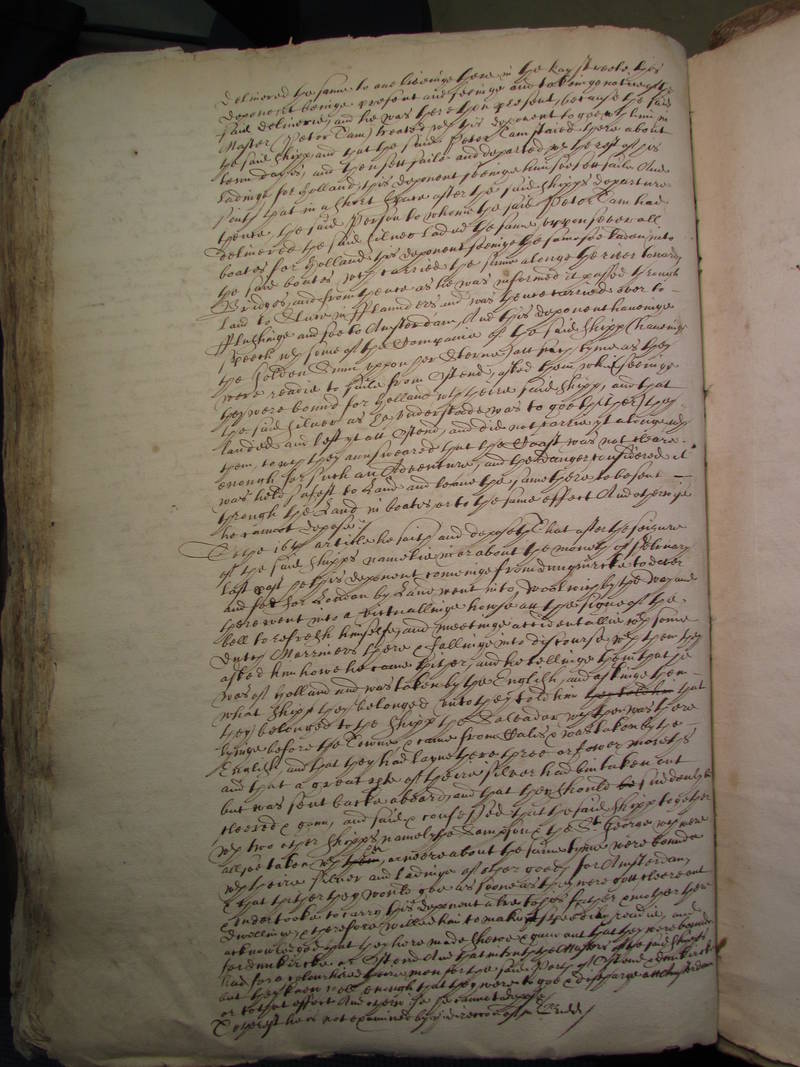 delivered the same to one liveinge there in the Kay streete this
deponent beinge present and seeinge and takeinge notice of the
said deliverie, and he was there then present, because the said
Master (Peter Tam) treated with this deponent to goe with him in
the said shipp, and that the said Peter Tam staied there about
tenn dayes, and then sett saile and departed with the rest of his
ladinge for Holland, this deponent seeinge him soe sett saile And
saith that in a short space after the said shipps departure
thence the said Person to whome the said Peter Tam had
delivered the said silver laded the same uppon severall
boates for Holland this deponent seeinge the same soe laden into
the said boates, which carried the same alonge the river towards
Bridges, and from thence as he was informed it passed through
land to Sluce in Fflaunders and was thence carried over to
Fflushinge and soe to Amsterdam, And this deponent haveinge
speech with some of the Companie of the said shipp (haveinge
the Golden Sunn uppon her sterne) att such tyme as they
were readie to saile from Ostend, asked them, why seeinge
they were bound for Holland with theire said shipp, and that
the said silver as he understoode was to goe thither, they
landed and left it att Ostend, and did not carrie it alonge with
them, to which they aunsweared that the Coast was not cleare
enough for such an Adventure, and the danger considered it
was held safest to land and leave the same there to be sent
through the land in boates, or to the same effect And otherwise
he cannot depose./
To the 16th article he saith and deposeth That after the seizure
of the said shipps namelie in or about the moneth of February
last past he this deponent comeinge from Dunquirke to Dover
and soe for London by land went into Woolwich by the way and
there went into a victuallinge house att the signe of the
bell to refresh himselfe, and meetinge accidentallie with some
Dutch Marriners there & fallinge into discourse with them they
asked him howe he came thither, and he tellinge them that he
was of Holland and was taken by the English, and askinge them
what shipp they belonged unto they told him they told him that
they belonged to the shipp the Salvador which then was there
lyinge before the Towne & came from Cales & was taken by the
English, and that they had layne there three or fower moneths
and that a great parte of theire silver had bin taken out
but was sent backe aboard, and that they should be suddenly be
cleered & gonn, and said & confessed that the said shipp together
with two other shipps namely the Sampson & the St George which were
alsoe taken with them, or neere about the same tyme were bounde
with theire silver and ladinge of other goods for Amsterdam,
& that thither they would goe as soone as they were gott cleere and
undertooke to carry this deponent alonge to his father & mother there
dwellinge, & therefore willed him to make himselfe readie, and
acknowledged that they here made shewe & gave out that they were bounde
for Dunkirke or Ostend And that the Masters of the said shipps
had for a colour hired some men for the said Ports of Ostend & Dunkirke
but they knew well enough that they were to goe & discharge att Amsterdam
or to that effect And otherwise he cannot depose
To the rest he is not examined by direccon of